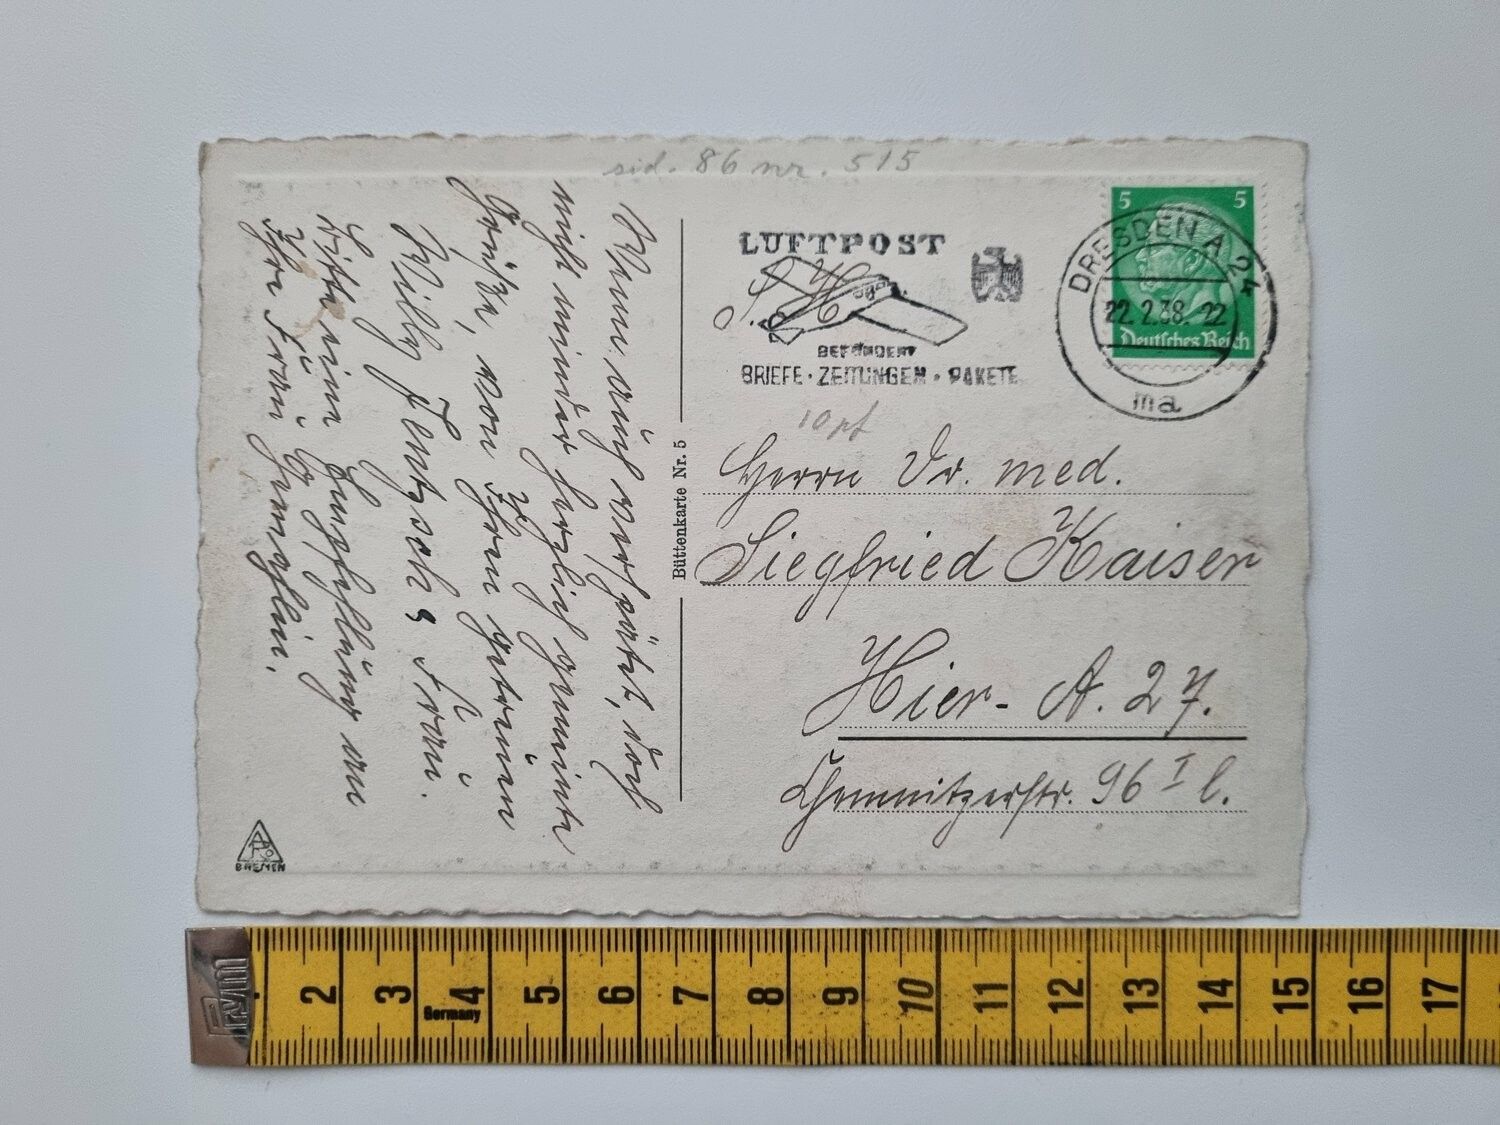 sid. 86 nr. 515
LUFTPOST
S. H.
BEFÖRDERT
BRIEFE · ZEITUNGEN · PAKETE
5 5
DRESDEN A 24
22.2.38. 22
Deutsches Reich
ma
10 pf
Herrn Dr. med.
Siegfried Kaiser
Hier - A. 27.
Chemnitzerstr. 96 I l.
Büttenkarte Nr. 5
Wenn auch verspätet, doch
nicht minder herzlich gemeinte
Grüße, von Ihrem getreuen
Willy Jentzsch & Frau.
Bitte eine Empfehlung an
Ihre Frau Gemahlin.
BREMEN
Prym
Germany
2 3 4 5 6 7 8 9 10 11 12 13 14 15 16 17